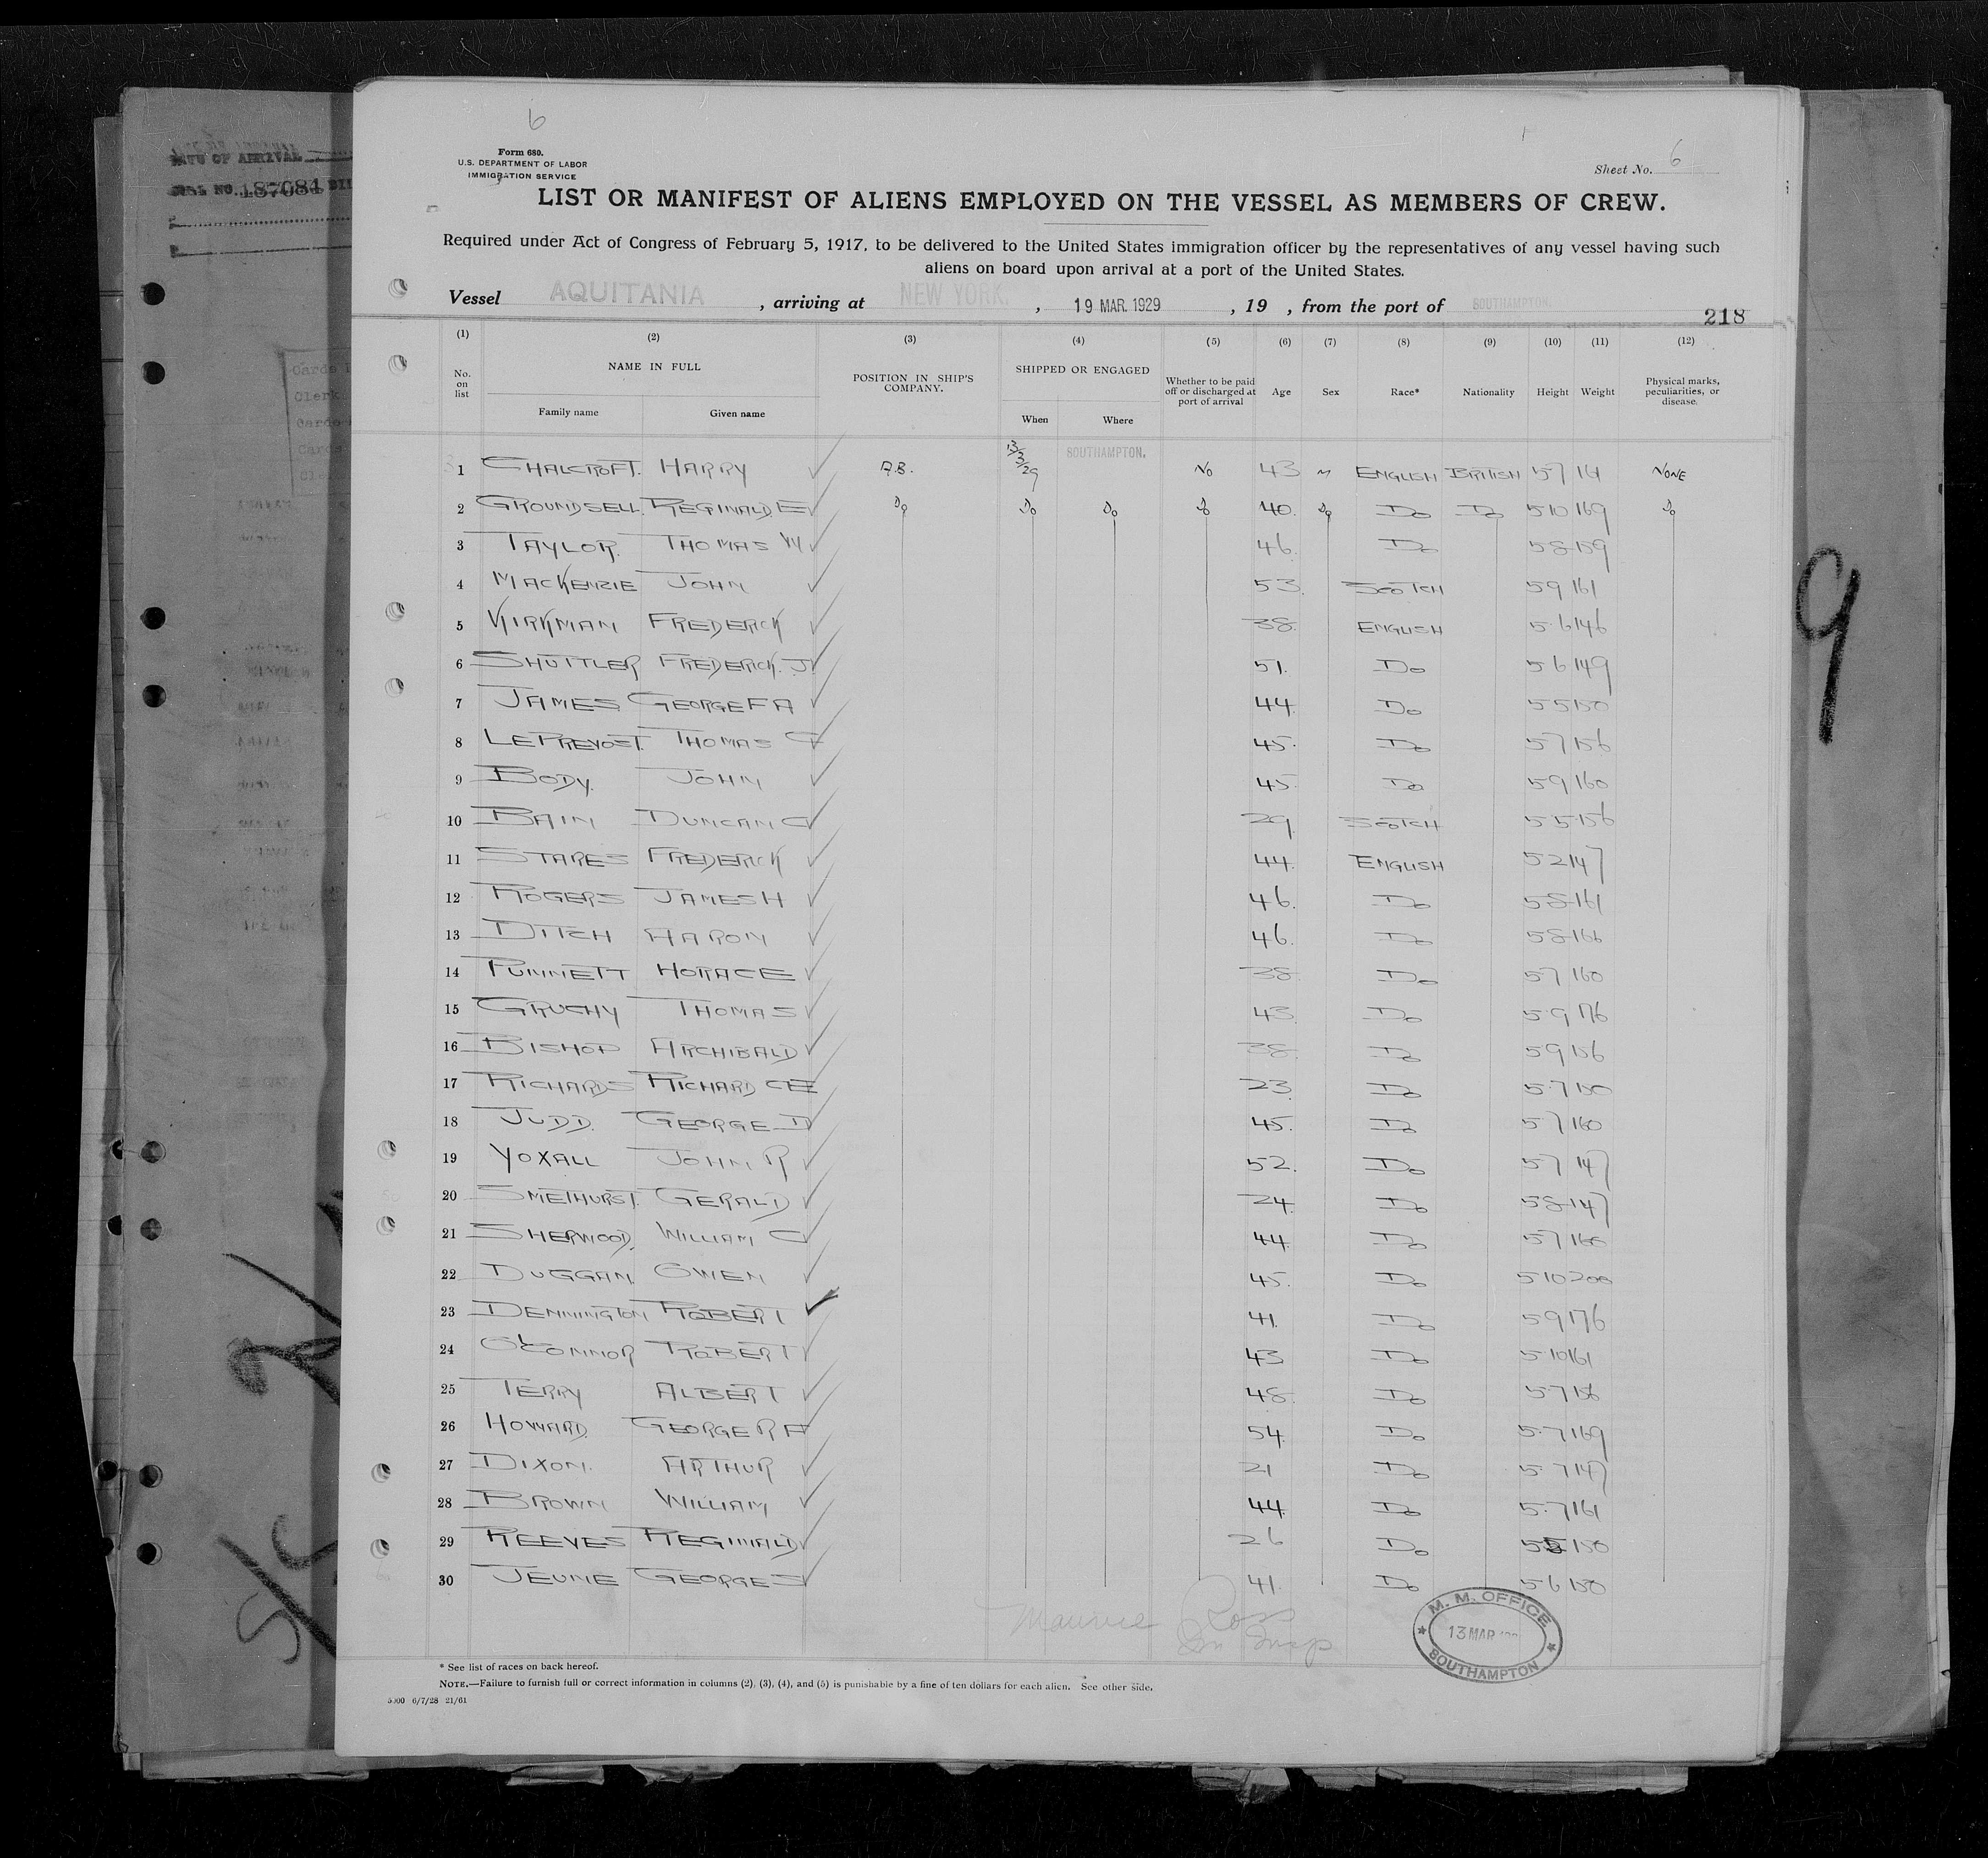 6
Form 680.
U.S. DEPARTMENT OF LABOR
IMMIGRATION SERVICE
Sheet No. 6
LIST OR MANIFEST OF ALIENS EMPLOYED ON THE VESSEL AS MEMBERS OF CREW.
Required under Act of Congress of February 5, 1917, to be delivered to the United States immigration officer by the representatives of any vessel having such
aliens on board upon arrival at a port of the United States.
Vessel AQUITANIA, arriving at NEW YORK., 19 MAR. 1929, 19 , from the port of SOUTHAMPTON.
218
(1) (2) (3) (4) (5) (6) (7) (8) (9) (10) (11) (12)
No. on list NAME IN FULL Family name Given name POSITION IN SHIP'S COMPANY. SHIPPED OR ENGAGED When Where Whether to be paid off or discharged at port of arrival Age Sex Race* Nationality Height Weight Physical marks, peculiarities, or disease.
1 CHALCROFT. HARRY A.B. 13/3/29 SOUTHAMPTON. NO 43 M ENGLISH BRITISH 57 161 NONE
2 GROUNDSELL. REGINALD E Do Do Do Do 40. Do Do Do 510 169 Do
3 TAYLOR. THOMAS W 46. Do 58 159
4 MACKENZIE JOHN 53. SCOTCH 59 161
5 KIRKMAN FREDERICK 38. ENGLISH 5.6 146
6 SHUTTLER FREDERICK. J. 51. Do 56 149
7 JAMES GEORGE F A 44. Do 55 150
8 LEPREVOST. THOMAS G 45. Do 57 156
9 BODY. JOHN 45. Do 59 160
10 BAIN DUNCAN C 29. SCOTCH 55 156
11 STARES FREDERICK 44. ENGLISH 52 147
12 ROGERS JAMES H 46. Do 58 161
13 DITCH AARON 46. Do 58 166
14 PUNNETT HORACE 38. Do 57 160
15 GRUCHY THOMAS 43. Do 5.9 176
16 BISHOP ARCHIBALD 38. Do 59 156
17 RICHARDS RICHARD C E 23. Do 5.7 150
18 JUDD. GEORGE D 45. Do 57 160
19 YOXALL JOHN R 52. Do 57 147
20 SMETHURST. GERALD 24. Do 58 147
21 SHERWOOD. WILLIAM C 44. Do 57 160
22 DUGGAN. OWEN 45. Do 510 200
23 DENNINGTON ROBERT 41. Do 59 176
24 O'CONNOR ROBERT 43 Do 5.10 161
25 TERRY ALBERT 48. Do 5.7 156
26 HOWARD. GEORGE R F 54. Do 5.7 169
27 DIXON. ARTHUR 21 Do 5.7 147
28 BROWN WILLIAM 44. Do 5.7 161
29 REEVES REGINALD 26 Do 55 150
30 JEUNE GEORGE S 41. Do 56 150
Maurice Ross
Im Insp
M. M. OFFICE
13 MAR
SOUTHAMPTON
* See list of races on back hereof.
NOTE.—Failure to furnish full or correct information in columns (2), (3), (4), and (5) is punishable by a fine of ten dollars for each alien. See other side.
5000 6/7/28 21/61
9
OF ARRIVAL
NO. 187084